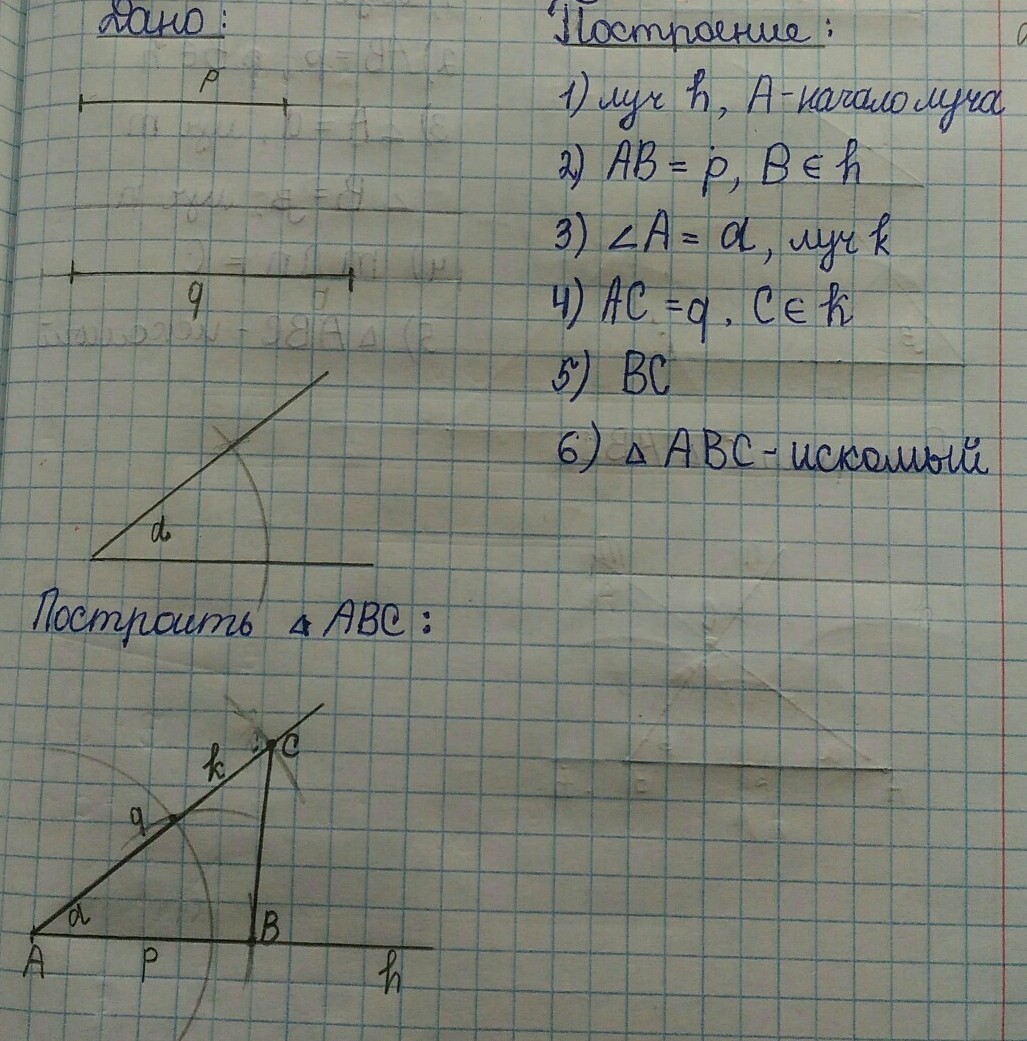 Дано:
p
q
α
Построить △ ABC:
k
C
q
α
B
A
p
h
Построение:
1) луч h, A - начало луча
2) AB = p, B ∈ h
3) ∠A = α, луч k
4) AC = q, C ∈ k
5) BC
6) △ ABC - искомый